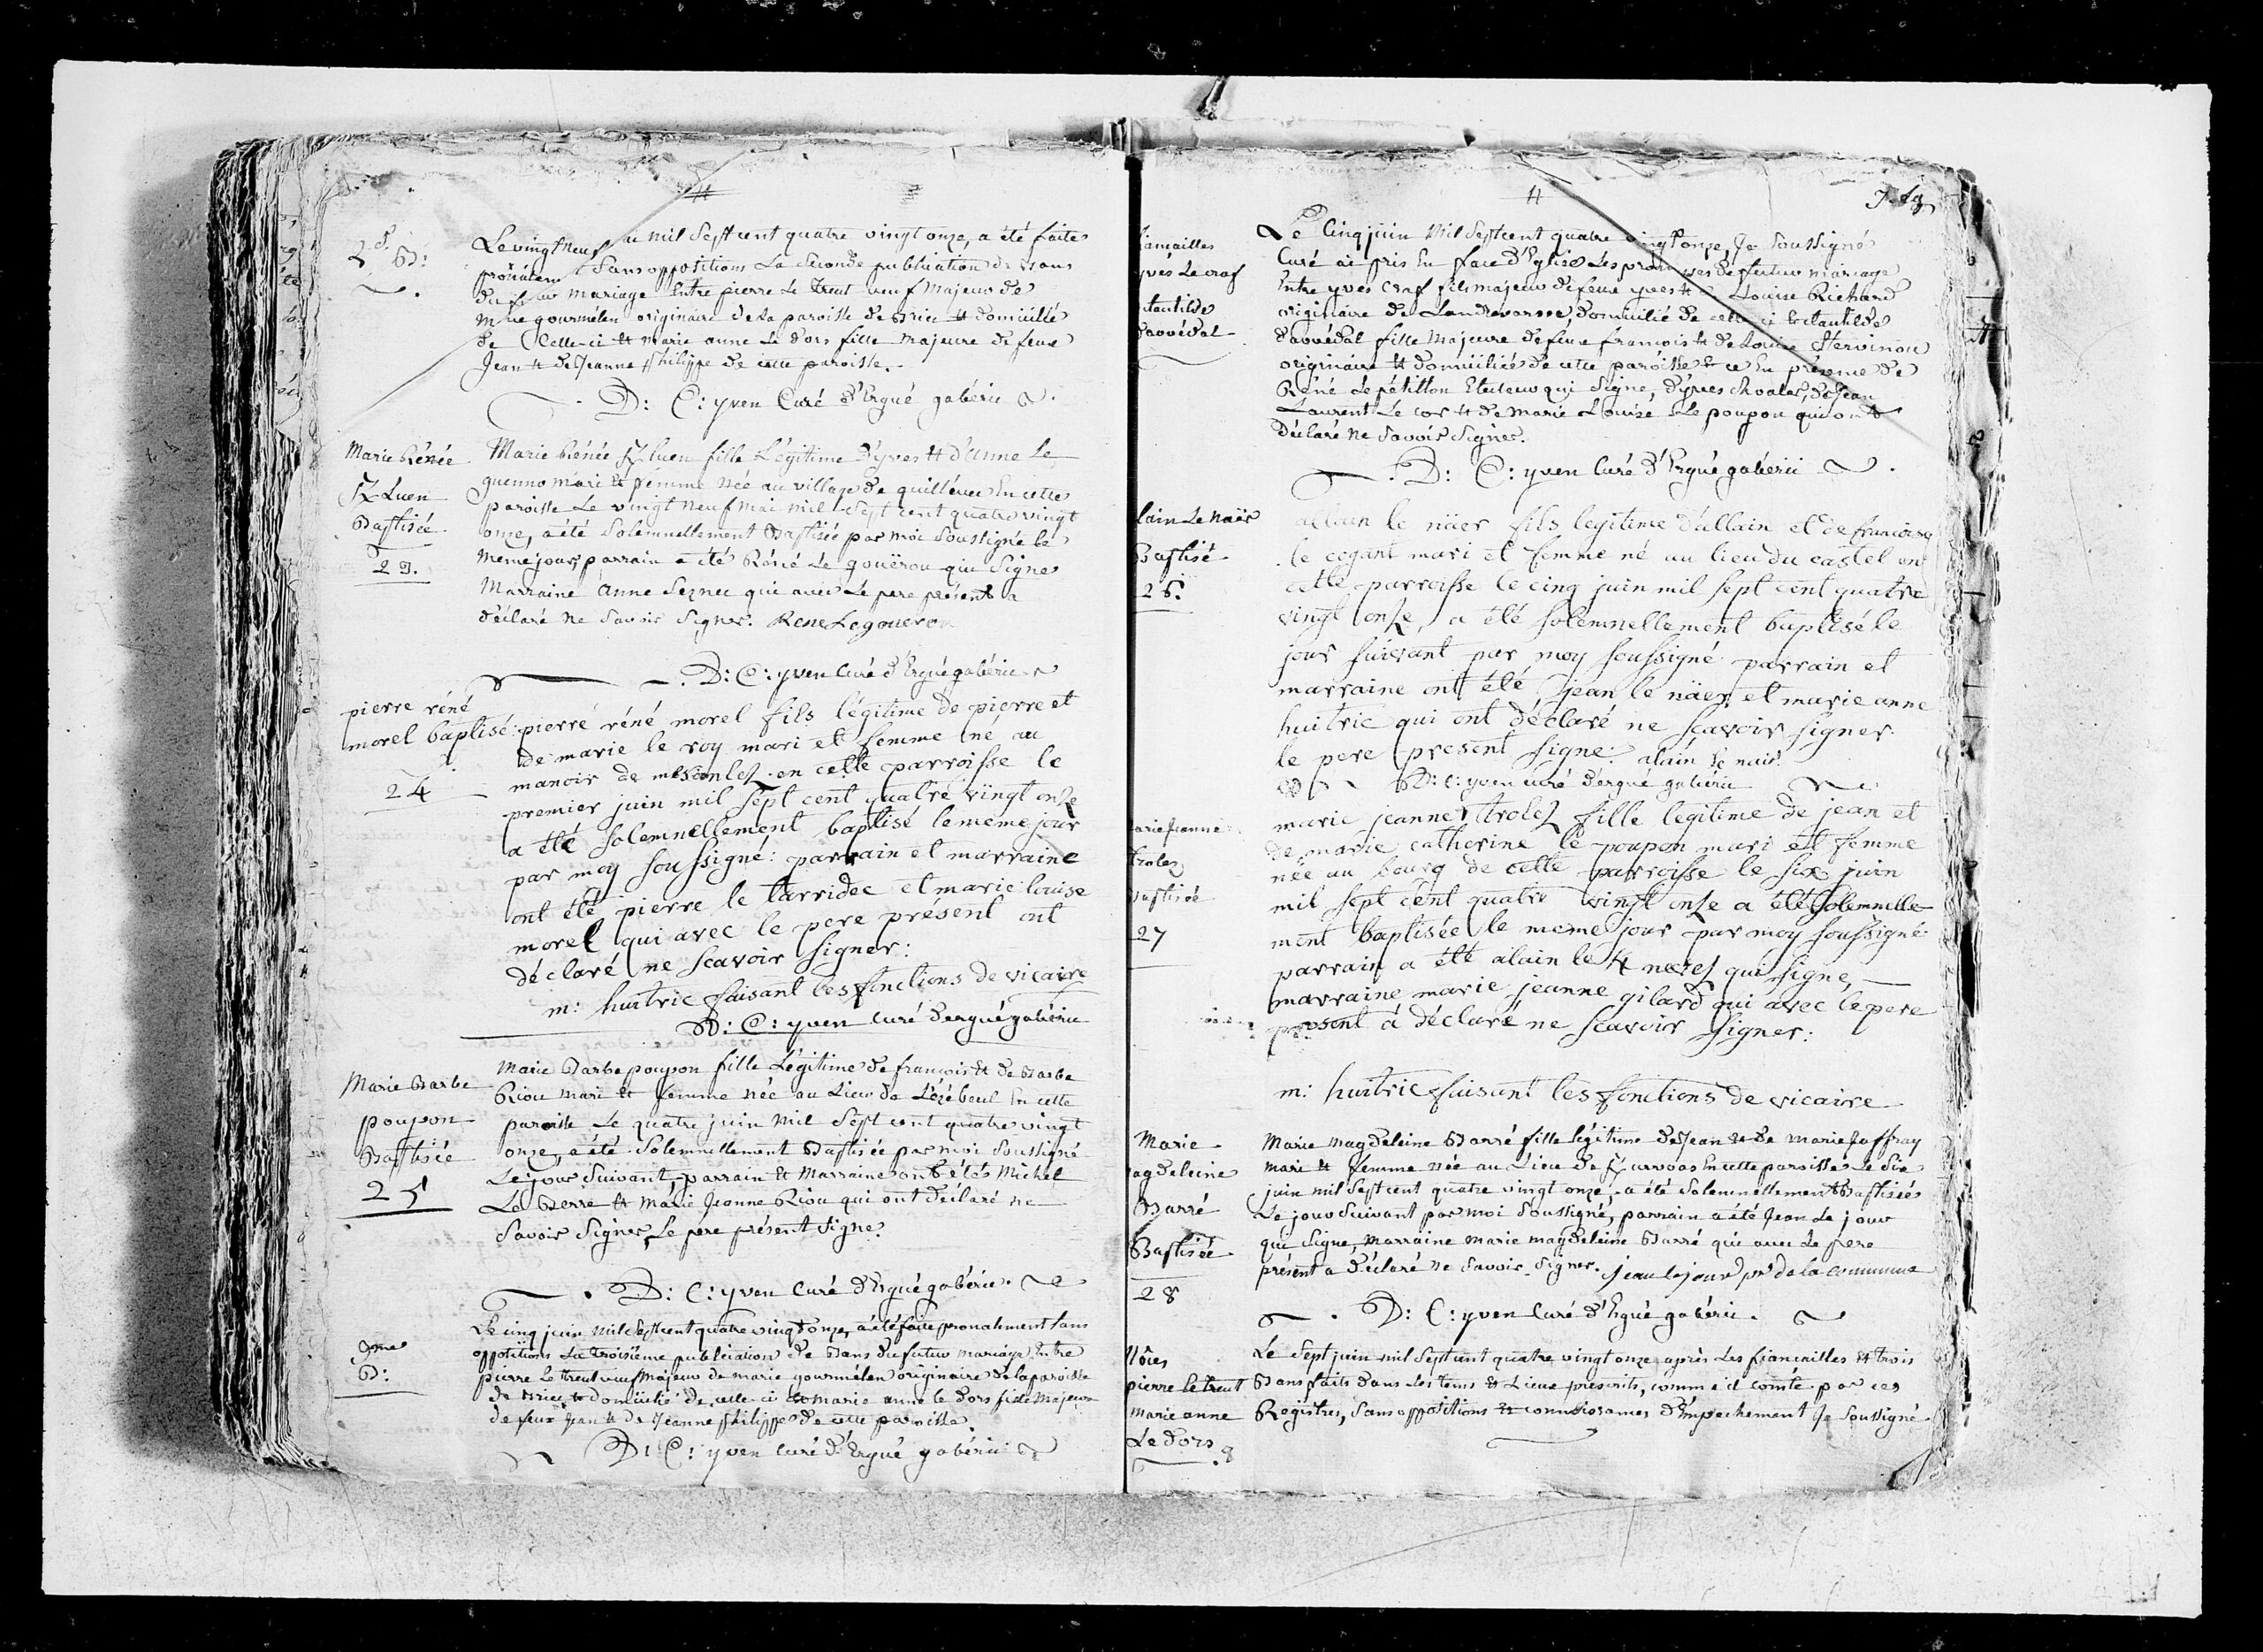 2.d B:
Le vingt neuf mil Sept cent quatre vingt onze, a été faite
Sans oppositions La Seconde publication de Bans
du futur Mariage Entre pierre Le treut veuf Majeur de
Marie gourmélen originaire de la paroisse de Briec et domicilié
de Celle-ci et Marie anne Le Dors fille Majeure de feue
Jean et de Jeanne Philippe de cette paroisse.
D: C: yven Curé d'Ergué gabéric
Marie Rénée
Luen
Baptisée
23.
Marie Rénée luen fille Légitime d'yves et d'anne Le
guenno mari et femme Née au village de quilléuec En cette
paroisse Le vingt neuf Mai mil Sept cent quatre vingt
onze, a été Solemnellement Baptisée par moi Soussigné Le
même jour, parrain a été Réné Le gouërou qui Signe
Marraine Anne Seznec qui avec Le pere présent a
déclaré ne Savoir Signer. Rene Le goueron
D: C: yven Curé d'Ergué gabéric
pierre réné
morel baptisé:
24
pierre réné morel fils légitime de pierre et
de marie le roy mari et femme né au
manoir de en cette parroisse le
premier juin mil sept cent quatre vingt onze
a été solemnellement baptisé le même jour
par moy soussigné: parrain et marraine
ont été pierre le tarridec et marie louise
morel qui avec le pere présent ont
déclaré ne scavoir signer:
m: huitric faisant les fonctions de vicaire
D: C: yven Curé d'ergué gabéric
Marie Barbe
poupon
Baptisée
25
Marie Barbe poupon fille Légitime de francois et de Barbe
Riou mari et femme née au Lieu de Lézébeul En cette
paroisse Le quatre juin mil Sept cent quatre vingt
onze, a été Solemnellement Baptisée par moi Soussigné
Le jour Suivant, parrain et Marraine ont étés Michel
La Berre et Marie Jeanne Riou qui ont déclaré ne
Savoir Signer, Le pere présent Signe.
D: C: yven Curé d'Ergué gabéric.
3me
B:
Le cinq juin mil Sept cent quatre vingt onze, a été faite pronalment sans
oppositions La troisième publiciation de Bans du futur mariage Entre
pierre Le treut veuf Majeur de marie gourmélen originaire de la paroisse
de Briec et domicilié de celle ci et marie anne le dors fille Majeure
de feux Jean et de Jeanne Philippe de cette paroisse.
D: C: yven Curé d'Ergué gabéric
fiancailles
yves Le craf
Clautilde
Daouédal
Le Cinq juin Mil Sept cent quatre vingt onze, Je Soussigné
Curé ai pris En face d'Eglise Les promesses de futur mariage
Entre yves Craf fils majeur de feue yves et Louise Richard
originaire de Landrevarsec, domicilié de celle ci et Clautilde
daouédal fille Majeure de feue francois et de Louise Hervinou
originaire et domiciliée de cette paroisse et ce En présence de
Réné Le pétillon qui Signe, d'yves de Jean
Laurent Le cor et de Marie Louise Le poupon qui ont
déclaré Ne Savoir Signer.
D: C: yven Curé d'Ergué gabéric
lain Le Naër
Baptisé
26.
allain le näer fils legitime d'allain et de francoise
le cogant mari et femme né au lieu du castel en
cette parroisse le cinq juin mil sept cent quatre
vingt onze, a été solemnellement baptisé le
jour suivant par moy soussigné parrain et
marraine ont été jean le näer et marie anne
huitric qui ont déclaré ne scavoir signer
le pere present signe: alain le nair
D: C: yven curé d'ergué gabéric
arie jeanne
troles
aptisée
27
marie jeanne trolez fille legitime de jean et
de marie catherine le poupon mari et femme
née au bourg de cette parroisse le six juin
mil sept cent quatre vingt onze a été solemnelle-
ment baptisée le meme jour par moy soussigné
parrain a été alain le qui signe,
marraine marie jeanne gilard qui avec le pere
présent à déclaré ne scavoir signer:
m: huitric faisant les fonctions de vicaire
Marie
agdeleine
Barré
Baptisée
28
Marie magdeleine Barré fille légitime de Jean et de Marie Jaffray
mari et femme née au Lieu de en cette paroisse Le Six
juin mil Sept cent quatre vingt onze, a été Solemnellement Baptisée
Le jour Suivant par moi Soussigné, parrain a été Jean Le jour
qui Signe, Marraine Marie magdeleine Barré qui avec Le pere
présent a déclaré ne Savoir Signer. jean le jour pr de la commune
D: C: yven Curé d'Ergué gabéric.
Nôces
pierre Le treut
Marie anne
Le dors
Le Sept juin mil Sept cent quatre vingt onze après Les fiancailles et trois
Bans faits dans les tems et Lieux prescrits, comme il conste par ces
Registres, Sans oppositions et connoissances d'Empechement Je Soussigné